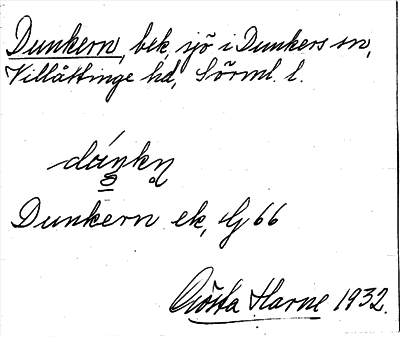 Dunkern, bek, sjö i Dunkers sn,
Villåttinge hd, Sörml. l.
dáŋkn̥
Dunkern ek, G 66
Gösta Harne 1932.